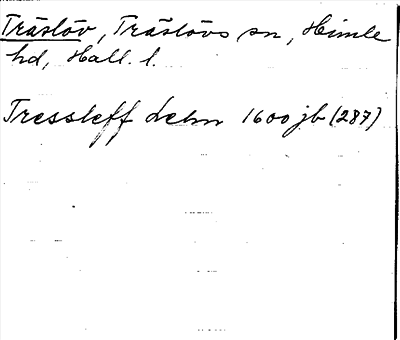 Träslöv, Träslövs sn, Himle
hd, Hall. l.
Tressleff Lehn 1600 jb (287)